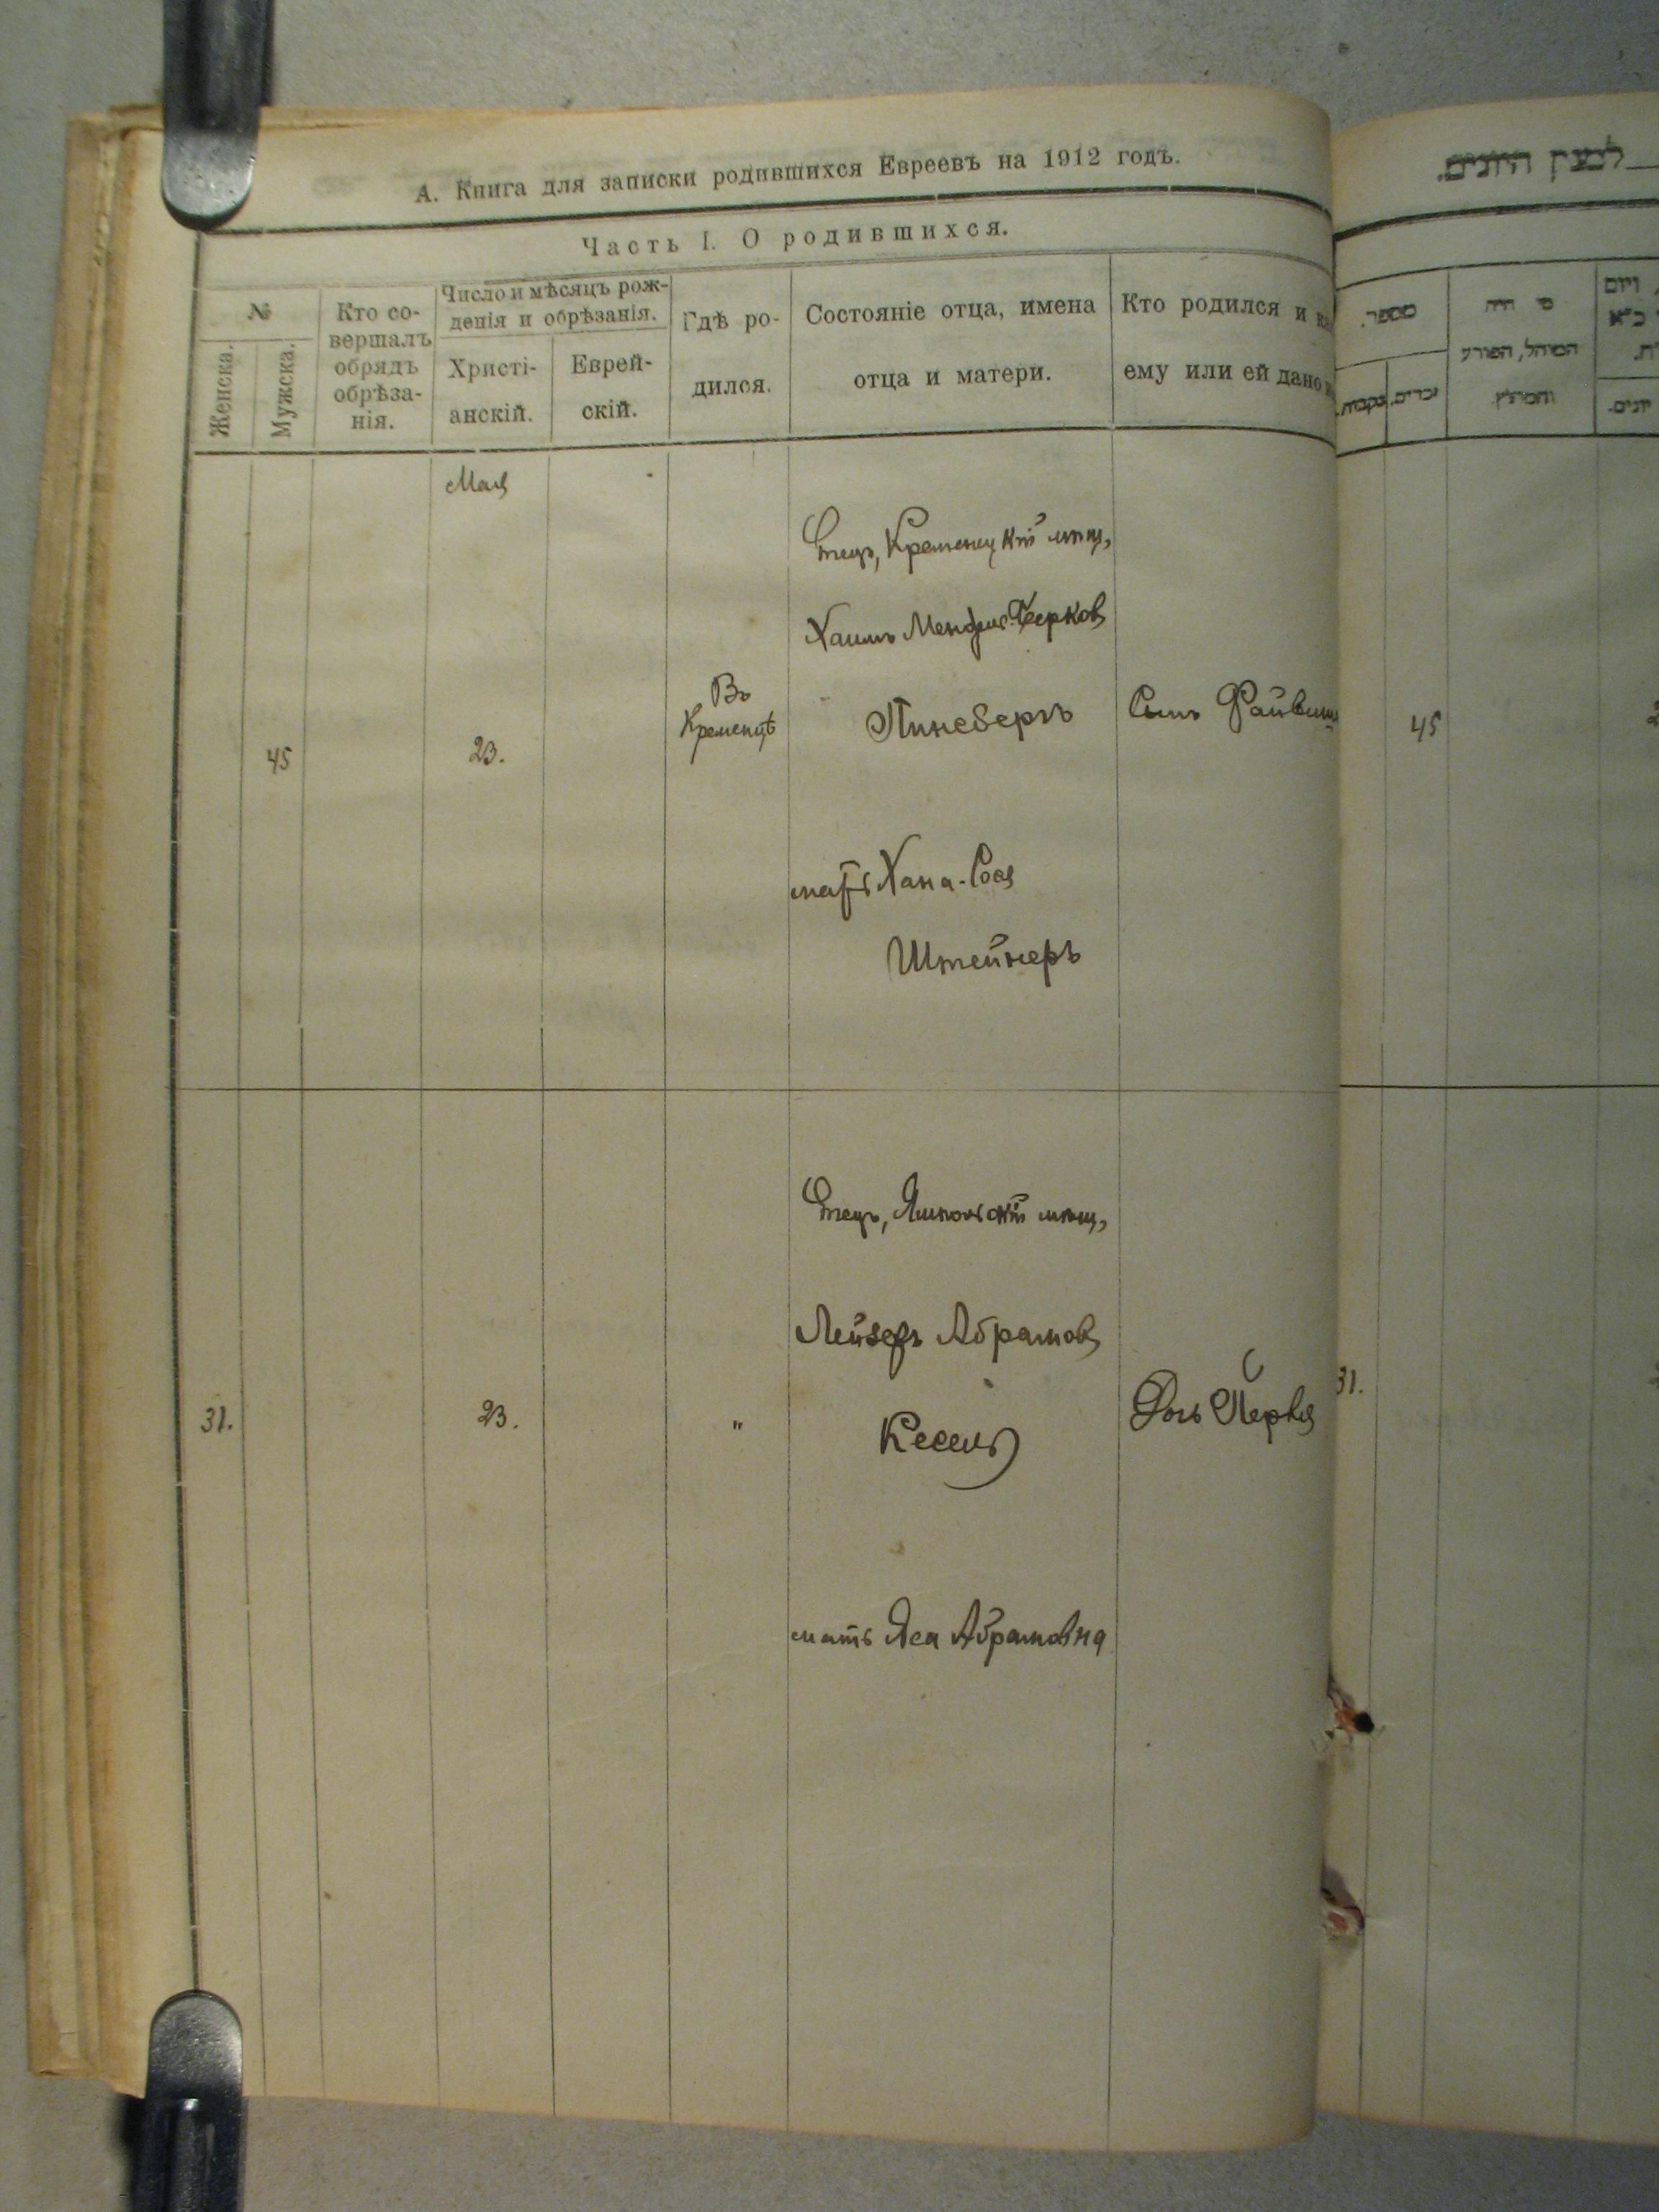 А. Книга для записки родившихся Евреевъ на 1912 годъ.
Часть I. О родившихся.
№
Женска.
Мужска.
Кто со-
вершалъ
обрядъ
обрѣза-
нія.
Число и мѣсяцъ рож-
денія и обрѣзанія.
Христі-
анскій.
Еврей-
скій.
Гдѣ ро-
дился.
Состояніе отца, имена
отца и матери.
Кто родился и
ему или ей дано
Мая
45
23.
Въ
Кременцѣ
Отецъ, Кременецкій мѣщ,
Хаимъ Берков
Пинсбергъ
мать Хана-Сося
Штейнеръ
Сынъ Файвиш
31.
23.
"
Отецъ, Ямпольскій мѣщ,
Лейзеръ Абрамов
Кесель
мать Абрамовна
Дочь Перля
מספר.
נקבות.
זכרים.
מי היה
המוהל, הפורע
והמוצץ
ויום
יונים.
45
31.